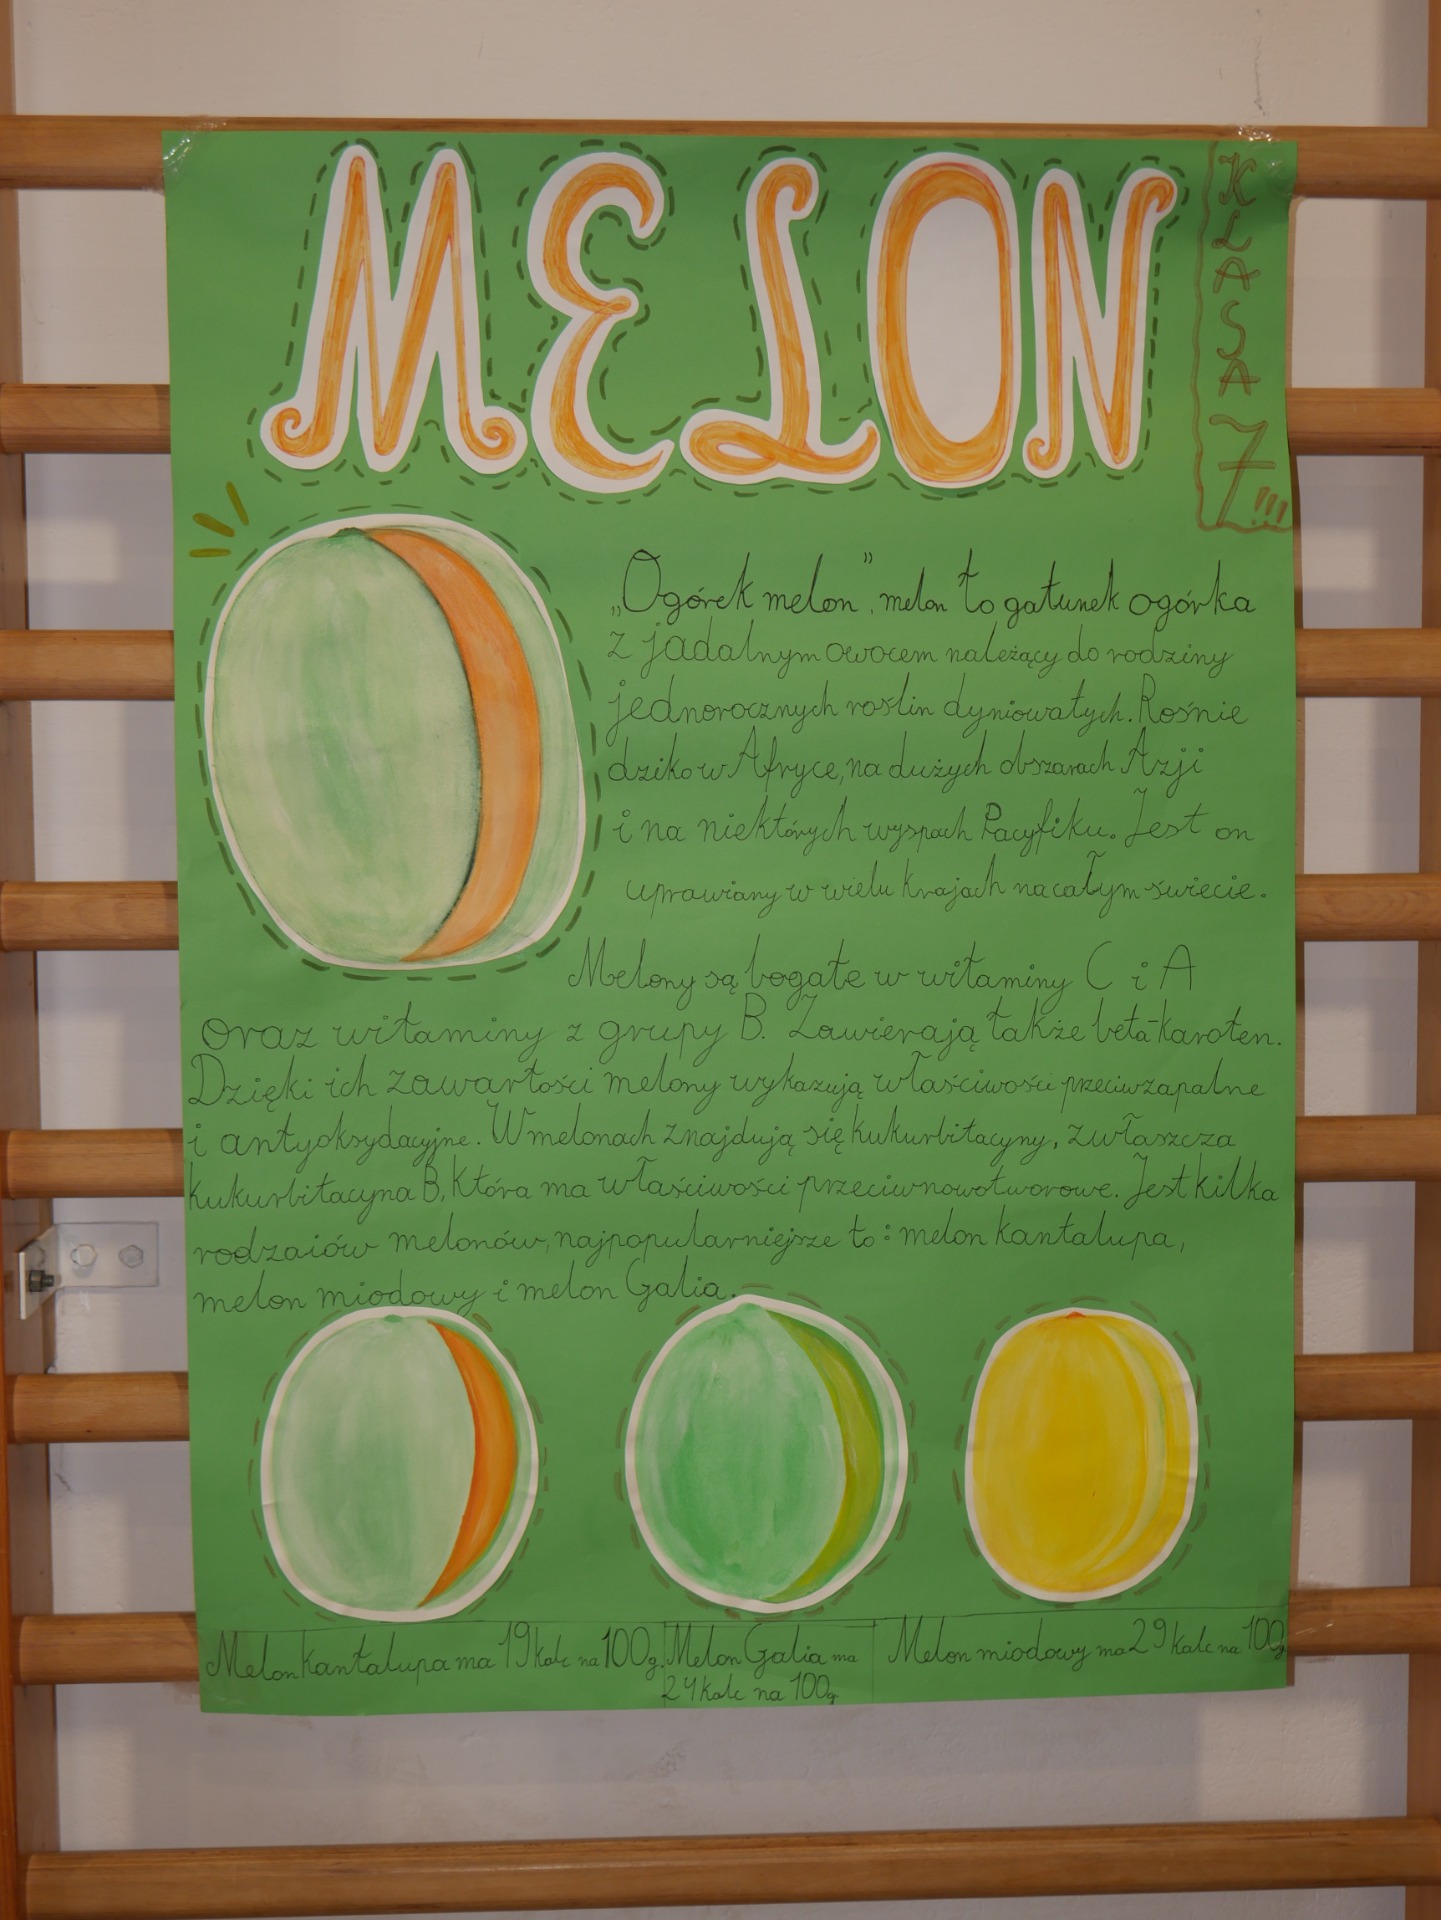 MELON
KLASA 7!!!
„Ogórek melon”, melon to gatunek ogórka
z jadalnym owocem należący do rodziny
jednorocznych roślin dyniowatych. Rośnie
dziko w Afryce, na dużych obszarach Azji
i na niektórych wyspach Pacyfiku. Jest on
uprawiany w wielu krajach na całym świecie.
Melony są bogate w witaminy C i A
oraz witaminy z grupy B. Zawierają także beta-karoten.
Dzięki ich zawartości melony wykazują właściwości przeciwzapalne
i antyoksydacyjne. W melonach znajdują się kukurbitacyny, zwłaszcza
kukurbitacyna B, która ma właściwości przeciwnowotworowe. Jest kilka
rodzaiów melonów, najpopularniejsze to: melon kantalupa,
melon miodowy i melon Galia.
Melon kantalupa ma 19 kalc na 100g.
Melon Galia ma
24 kalc na 100g
Melon miodowy ma 29 kalc na 100g